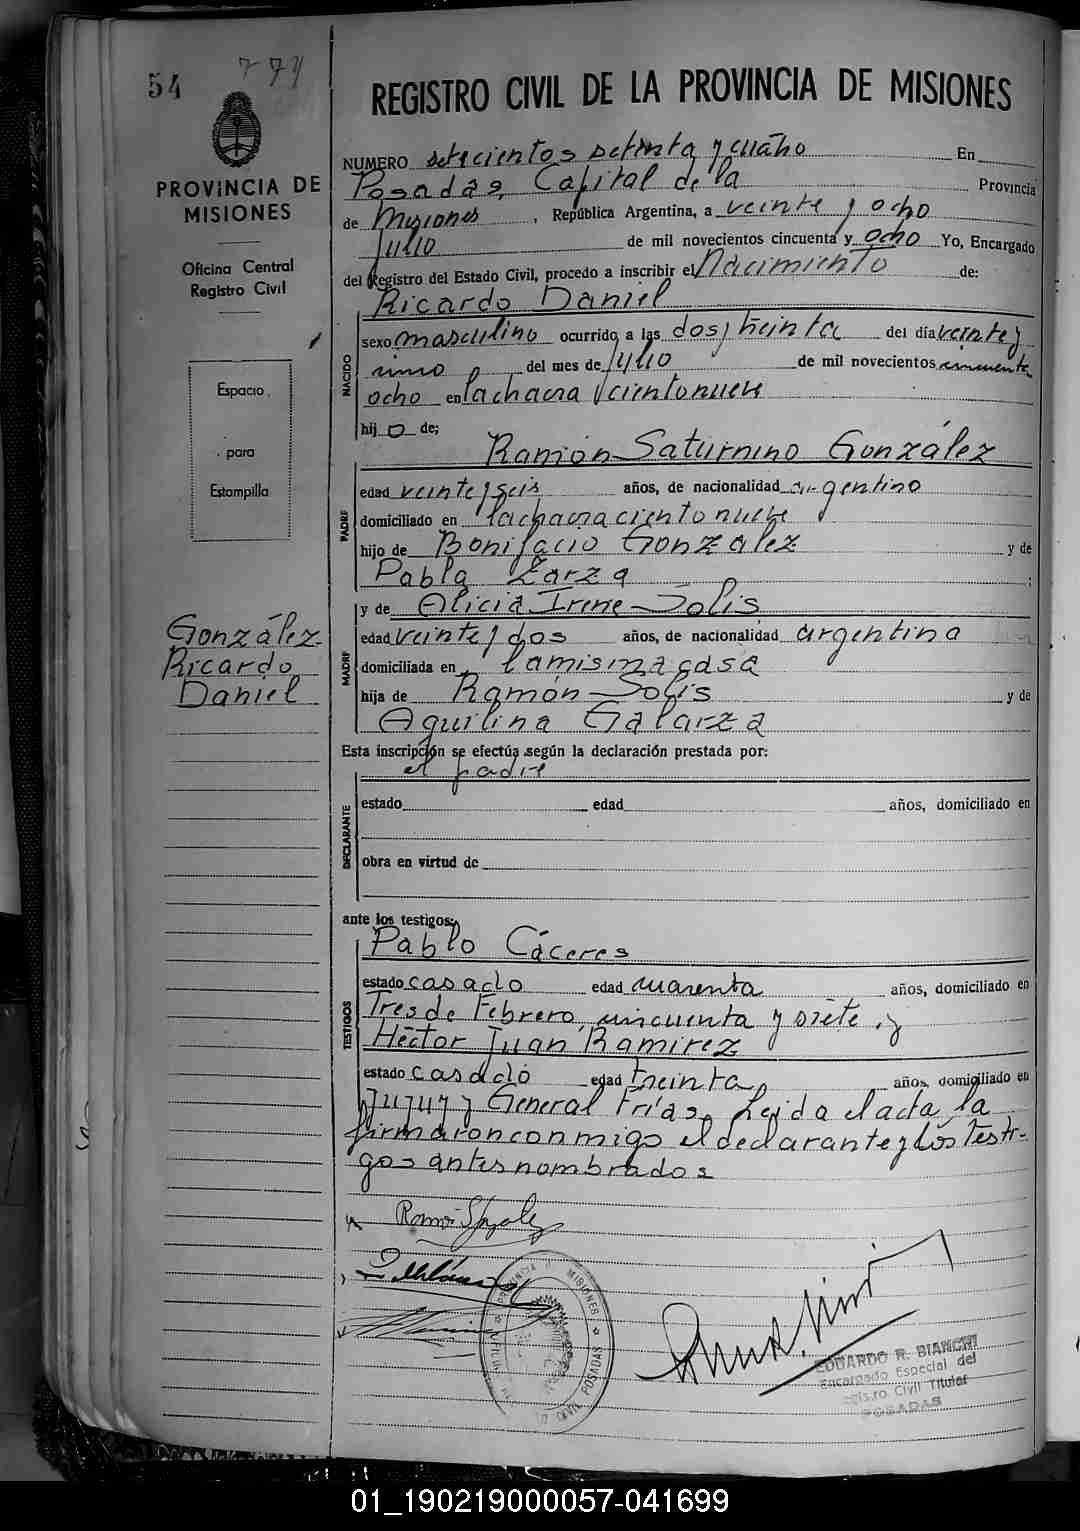 54
774
PROVINCIA DE
MISIONES
Oficina Central
Registro Civil
Espacio
para
Estampilla
González
Ricardo
Daniel
REGISTRO CIVIL DE LA PROVINCIA DE MISIONES
NUMERO setecientos setenta y cuatro En
Posadas, Capital de la Provincia
de Misiones, República Argentina, a veinte y ocho
julio de mil novecientos cincuenta y ocho Yo, Encargado
del Registro del Estado Civil, procedo a inscribir el Nacimiento de:
Ricardo Daniel
NACIDO
sexo masculino ocurrido a las dos y treinta del día veinte y
uno del mes de julio de mil novecientos cincuenta
ocho en la chacra ciento nueve
hijo de;
Ramón Saturnino González
PADRE
edad veinte y seis años, de nacionalidad argentino
domiciliado en la chacra ciento nueve
hijo de Bonifacio González y de
Pabla Zarza ;
y de Alicia Irene Solís
MADRE
edad veinte y dos años, de nacionalidad argentina
domiciliada en la misma casa
hija de Ramón Solís y de
Aquilina Galarza
Esta inscripción se efectúa según la declaración prestada por:
el padre
DECLARANTE
estado edad años, domiciliado en
obra en virtud de
ante los testigos;
Pablo Cáceres
TESTIGOS
estado casado edad cuarenta años, domiciliado en
Tres de Febrero, cincuenta y siete, y
Héctor Juan Ramírez
estado casado edad treinta, años, domiciliado en
Jujuy y General Frías. Leída el acta, la
firmaron conmigo el declarante y los testi-
gos antes nombrados
PROVINCIA D MISIONES
CIVIL POSADAS
EDUARDO R. BIANCHI
Encargado Especial del
Registro Civil Titular
POSADAS
01_190219000057-041699